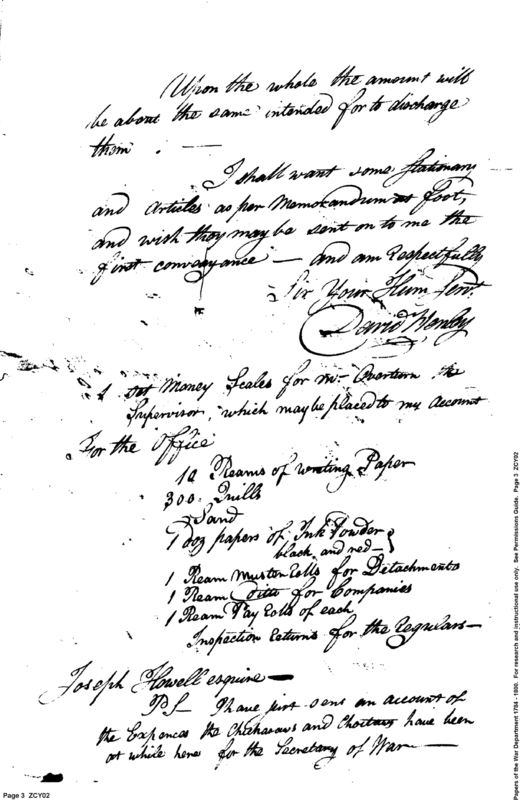 Upon the whole the amount will
be about the same intended for to discharge
them . —
I shall want some Stationary
and Articles as per Memorandum at foot,
and wish they may be sent on to me the
first conveyance — and am respectfully
Sir Your Hum Sert.
David Henley
1 set Money Scales for Mr Overton the
Supervisor, which may be placed to my account
For the Office
10 Reams of writing Paper
300 Quills
Sand
1 doz papers of Ink Powder
black and red —
1 Ream Muster Rolls for Detachments
1 Ream Ditto for Companies
1 Ream Pay Rolls of each
Inspection returns for the Regulars —
Joseph Howell esquire —
PS I have just sent an account of
the Expences the Chickasaws and Choctaws have been
at while here for the Secretary of War —
Page 3 ZCY02
Papers of the War Department 1784 - 1800. For research and instructional use only. See Permissions Guide. Page 3 ZCY02